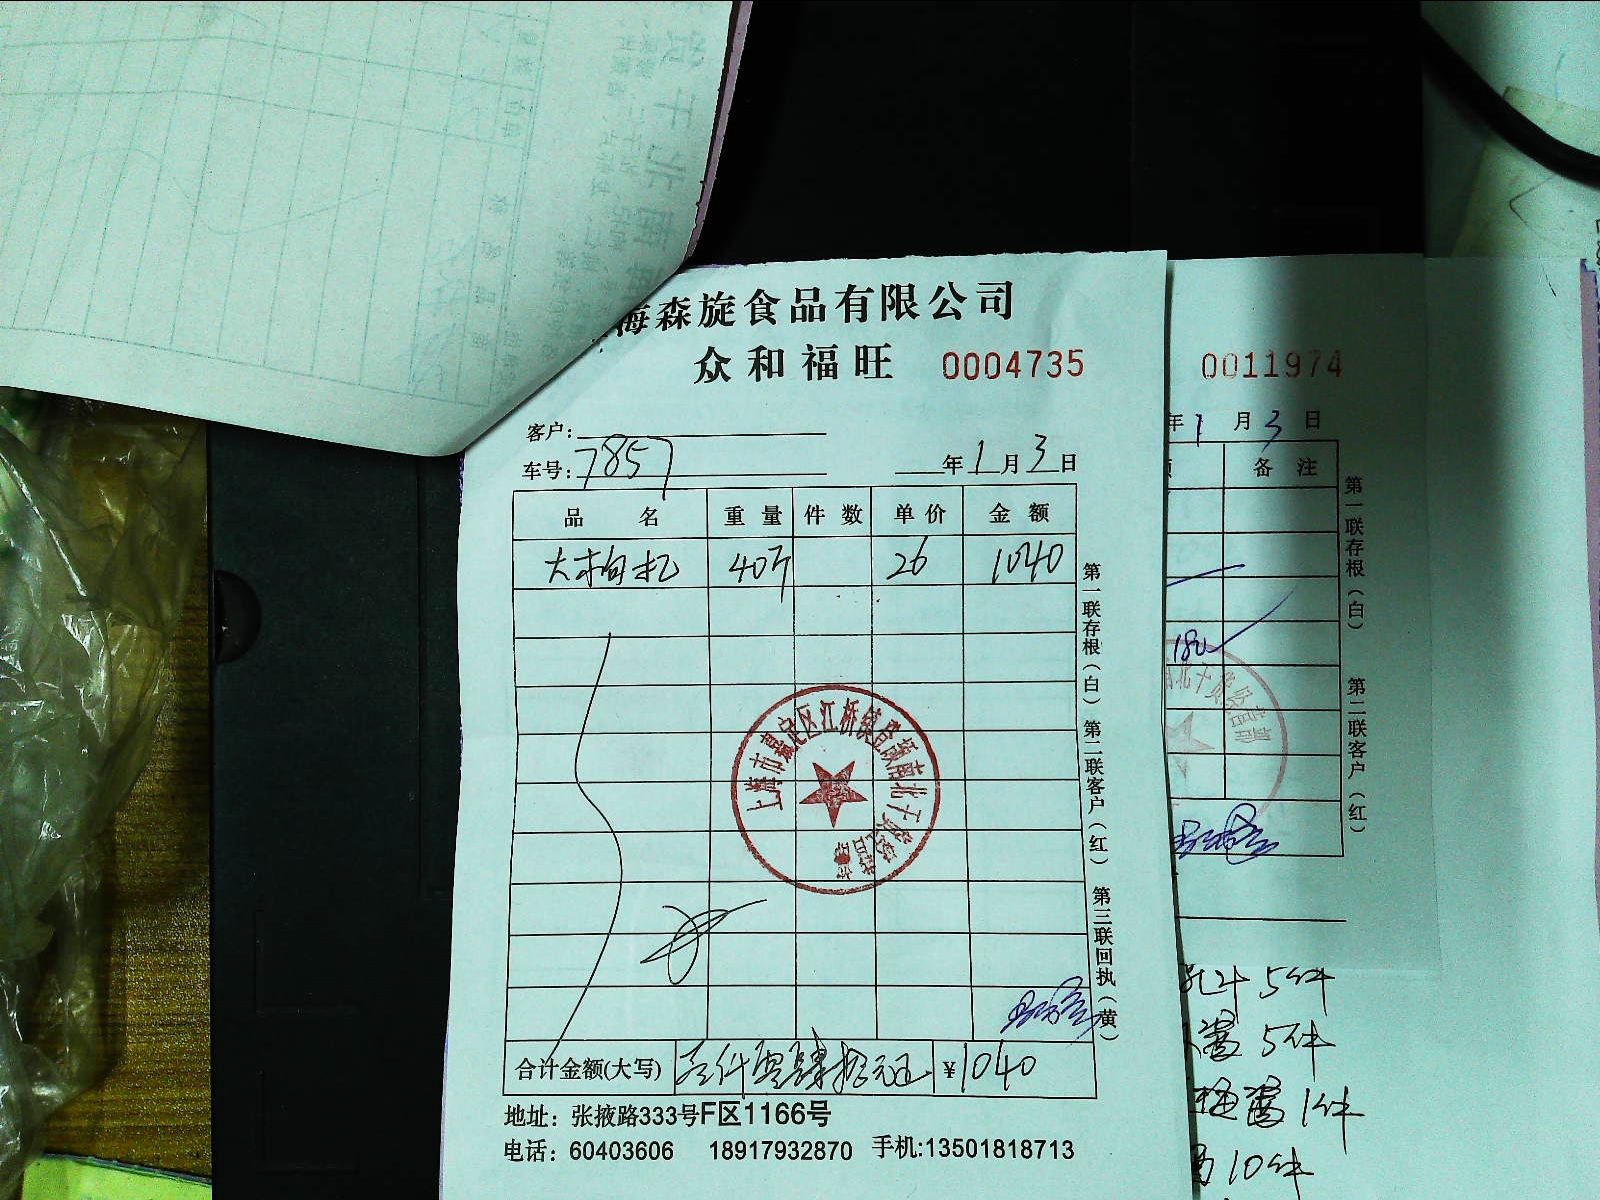 海森旋食品有限公司
众和福旺 0004735
客户:
车号: 7857 年1月3日
品名 重量 件数 单价 金额
大枸杞 40斤 26 1040
上海市嘉定区江桥镇
合计金额(大写) ¥1040
地址: 张掖路333号F区1166号
电话: 60403606 18917932870 手机:13501818713
第一联存根(白) 第二联客户(红) 第三联回执(黄)
0011974
年1月3日
备注
180
第一联存根(白) 第二联客户(红)
5件
5件
1件
10件